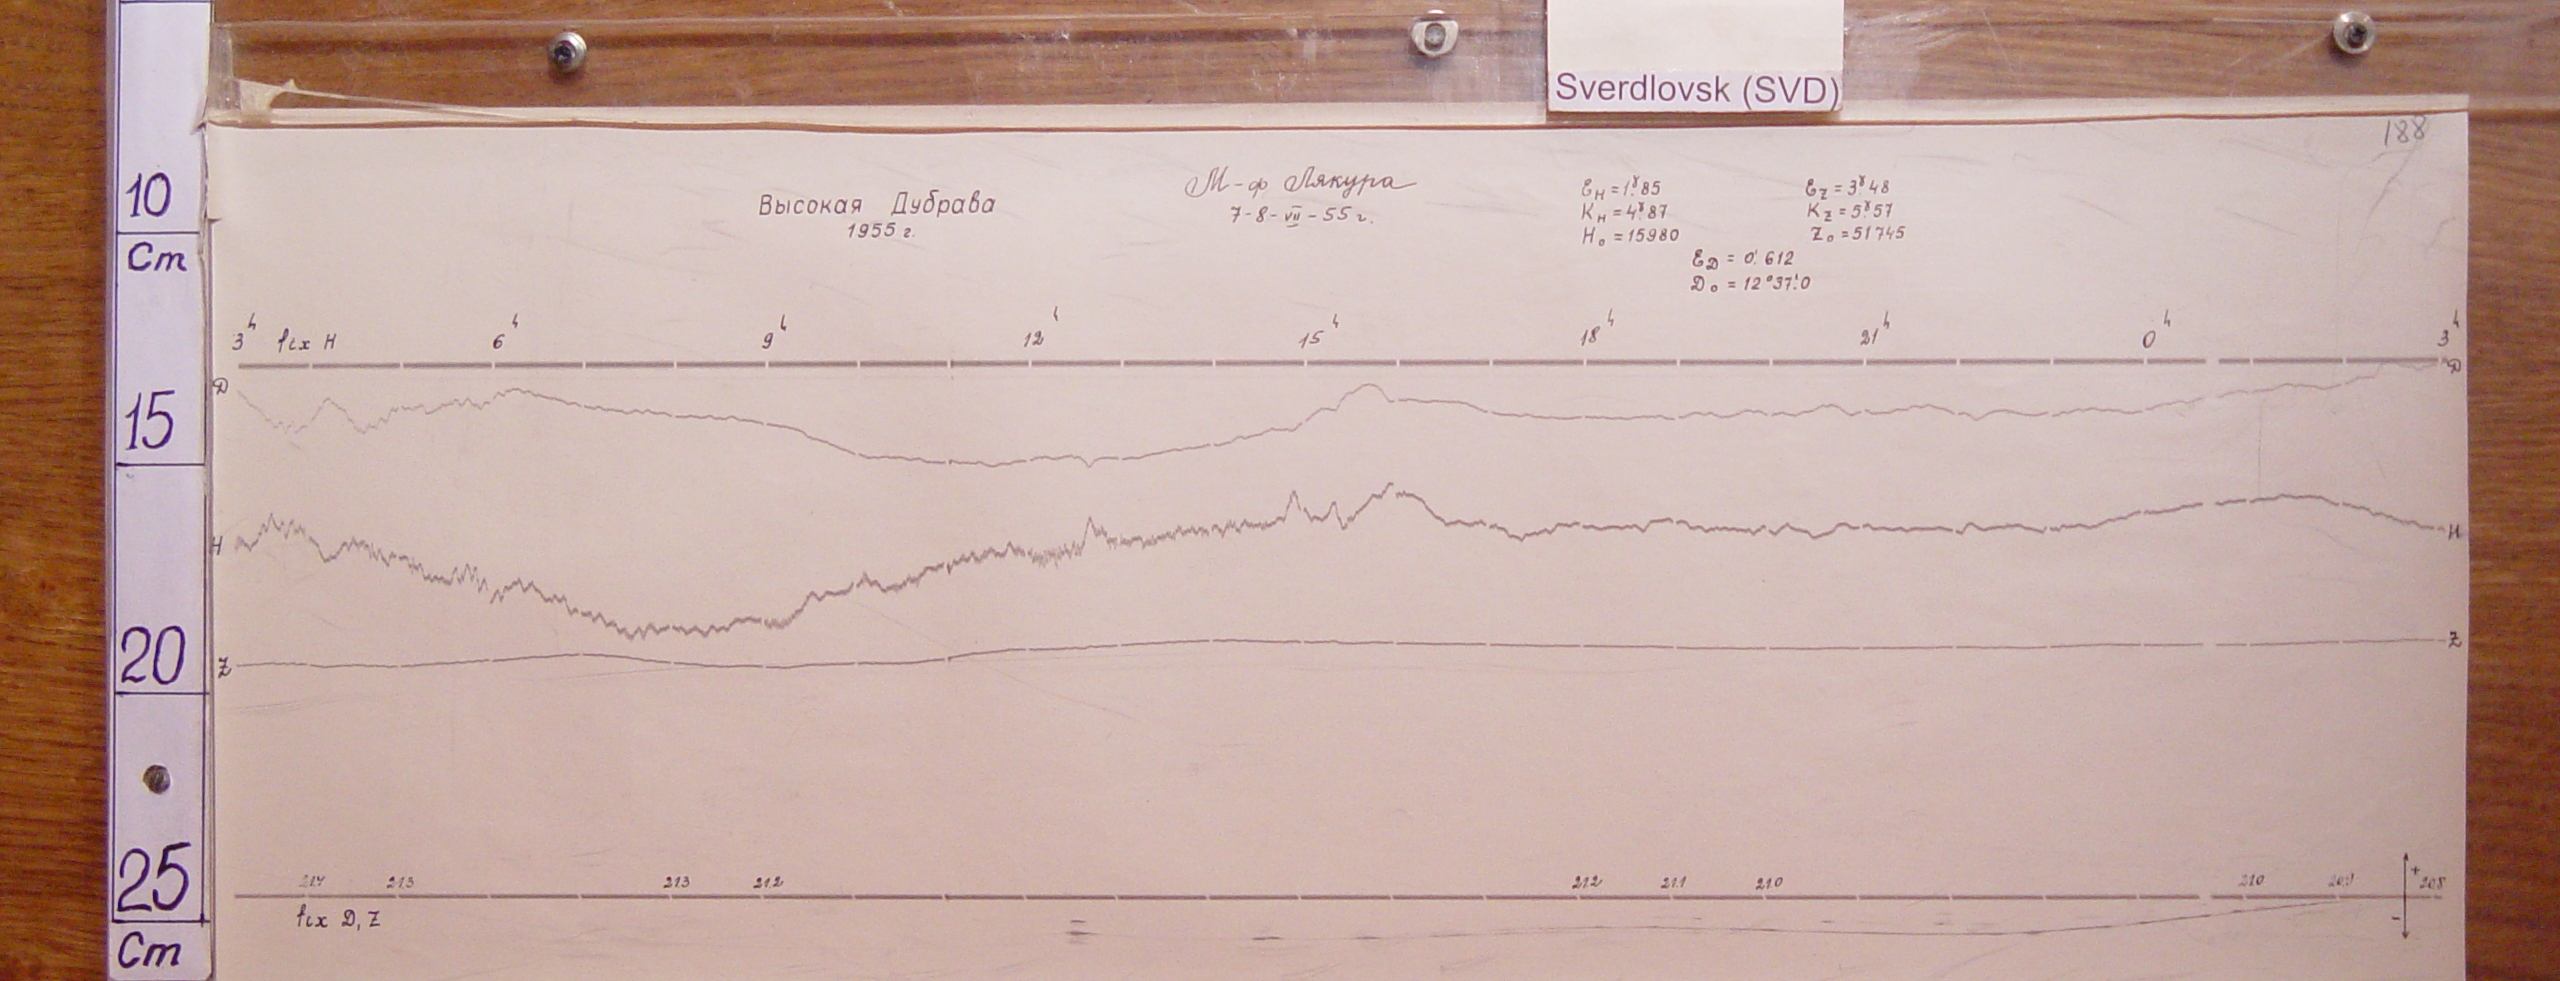 Sverdlovsk (SVD)
188
Высокая Дубрава
1955 г.
М-ф Лякура
7-8-VII-55 г.
Ɛ_H = 1^γ.85
K_H = 4^γ.87
H_o = 15980
Ɛ_Z = 3^γ.48
K_Z = 5^γ.57
Z_o = 51745
Ɛ_D = 0'.612
D_o = 12°37'.0
3^h fix H 6^h 9^h 12^h 15^h 18^h 21^h 0^h 3^h
D D
H H
Z Z
21.3 21.3 21.2 21.2 21.1 21.0 21.0 20.9 + 20.8
fix D, Z
-
10
Cm
15
20
25
Cm